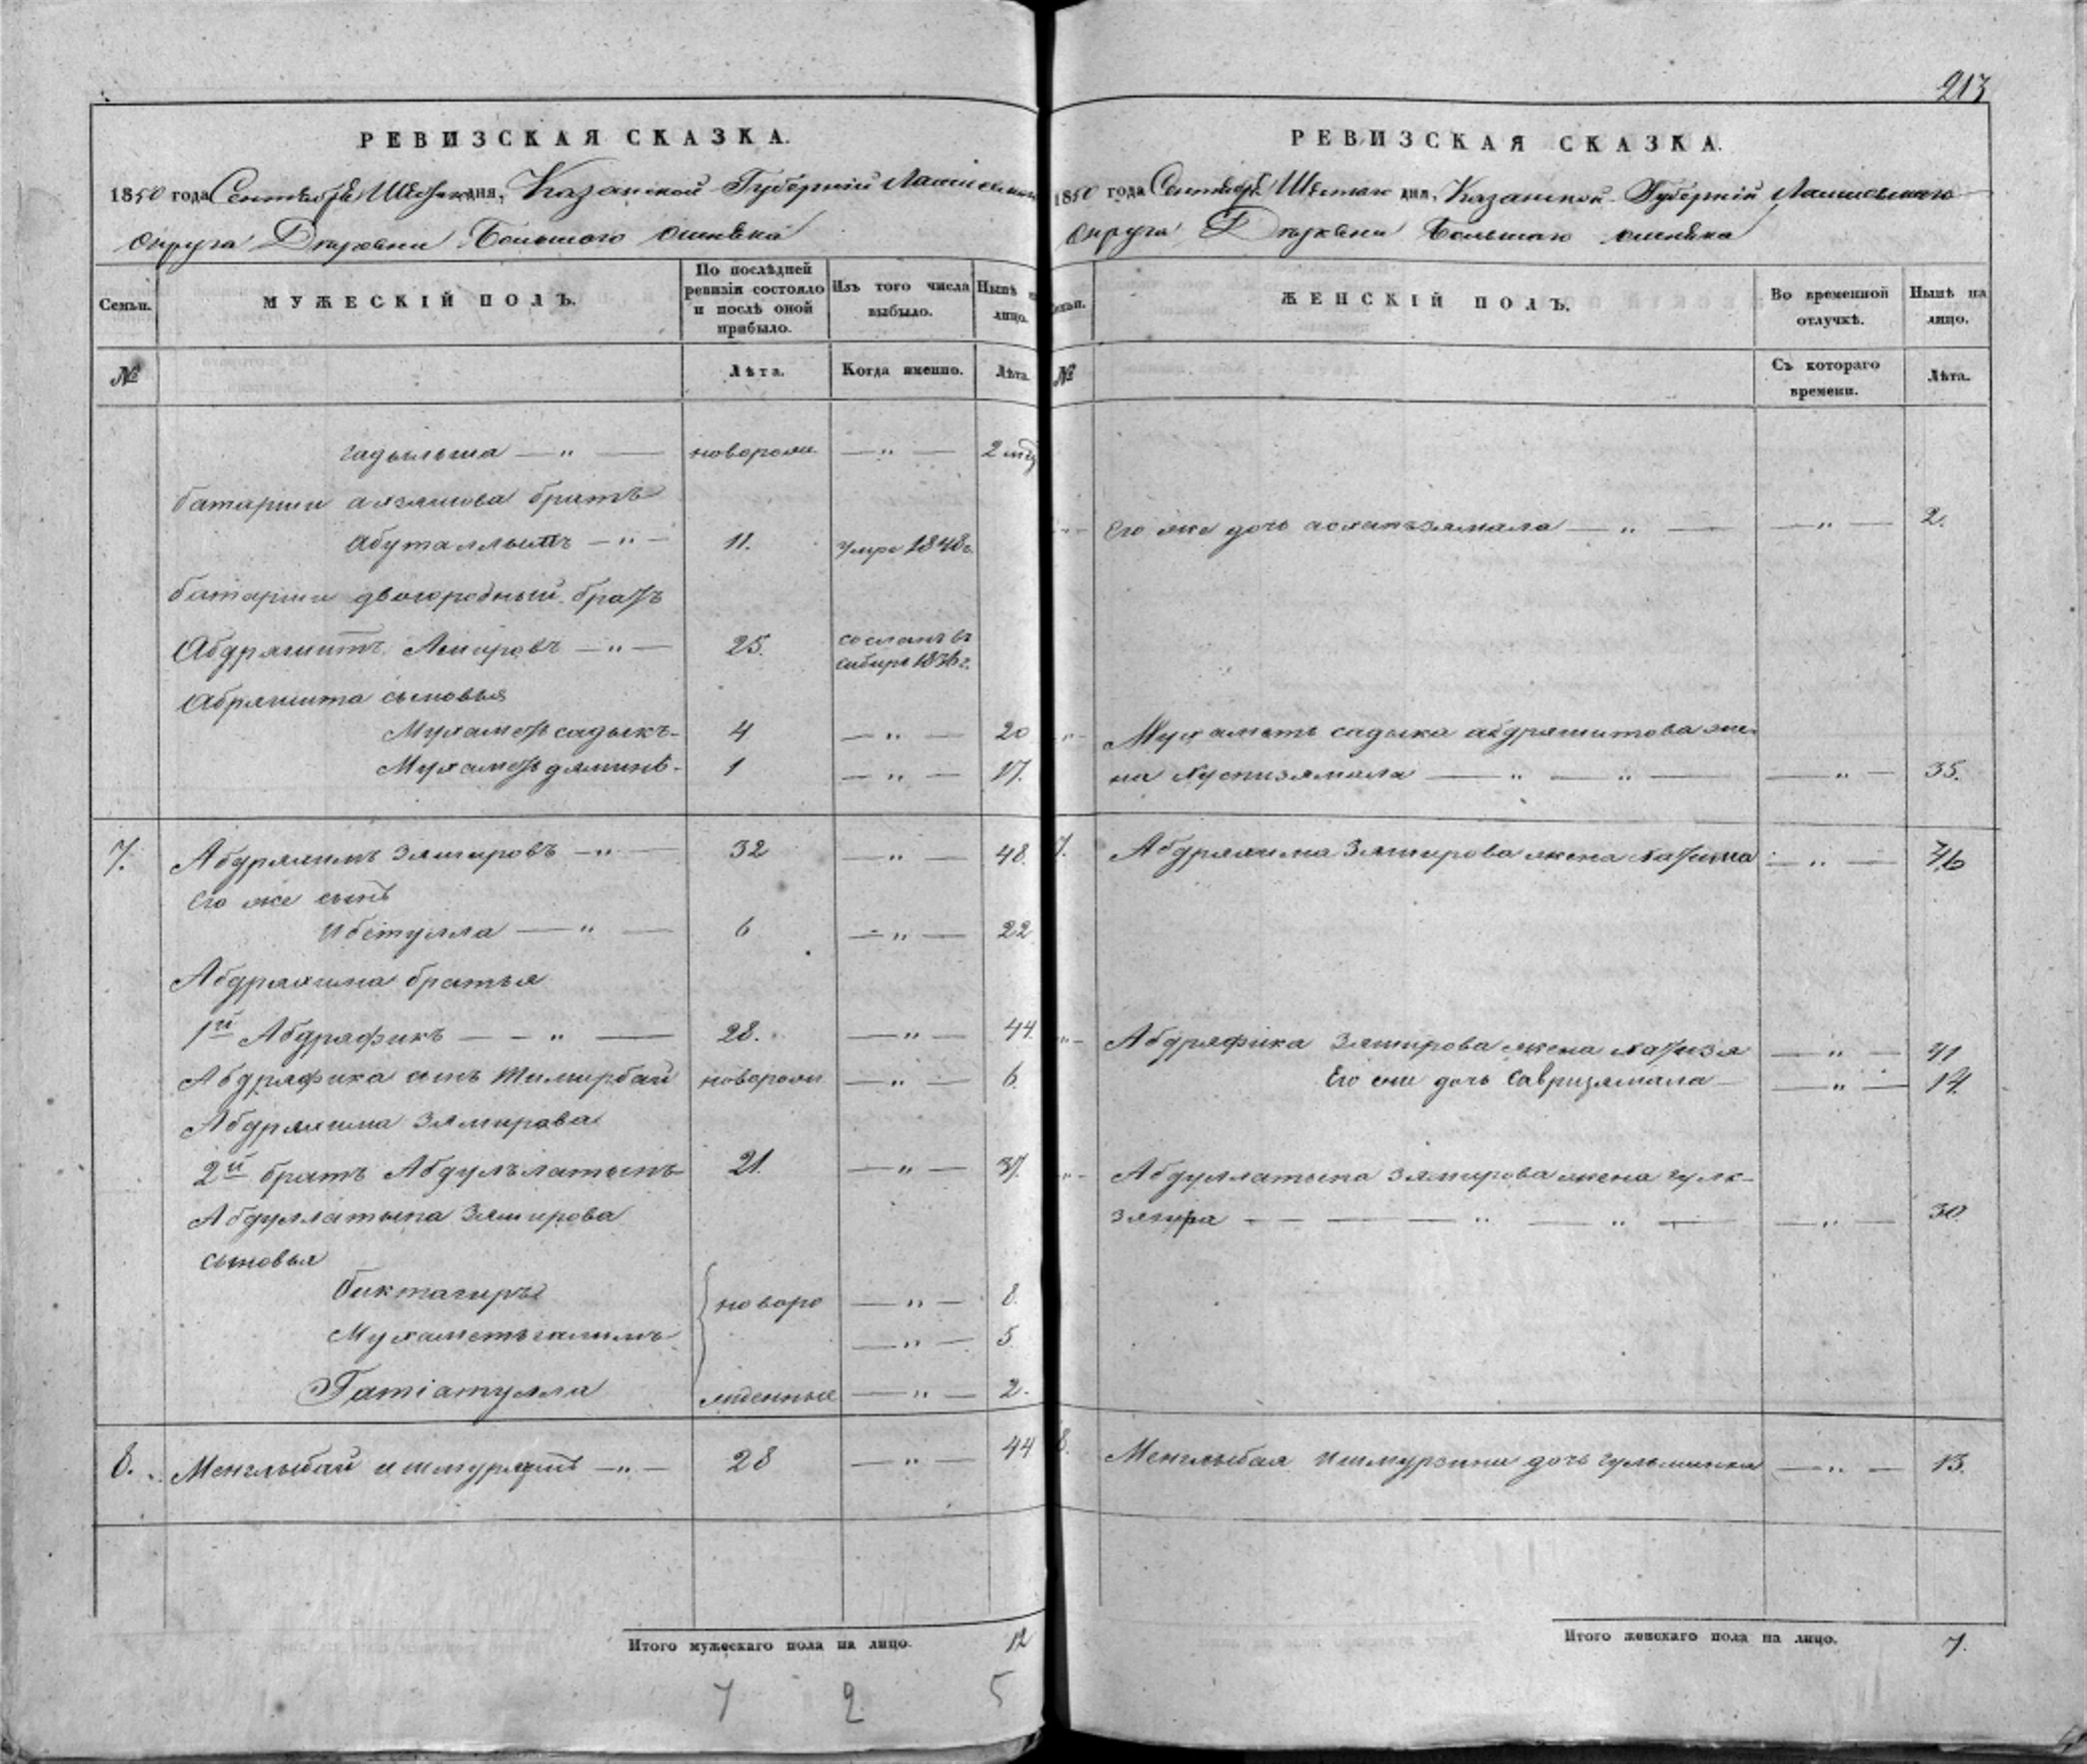 РЕВИЗСКАЯ СКАЗКА.
1850 года Сентября Шестаго дня, Казанской Губерніи Лаишевскаго
округа Деревни Большого ошняка
Семьи.
МУЖЕСКІЙ ПОЛЪ.
По послѣдней ревизіи состояло и послѣ оной прибыло.
Изъ того числа выбыло.
Нынѣ на лицо.
№
Лѣта.
Когда именно.
Лѣта.
гадыльша — " — новорож. — " — 2 мѣ
батарши аязямова братъ
Абуталлыпъ — " — 11. умре 1848г.
батарши двоюродный братъ
Абдряшитъ Амировъ — " — 25. сосланъ въ
сибирь 1836г.
Абряшита сыновья
Мухаметь садыкъ - 4 — " — 20
Мухаметь дяминъ - 1 — " — 17.
7. Абдряхимъ Зямировъ — " — 32 — " — 48.
Его же сынъ
Ибетулла — " — 6 — " — 22
Абдряхима братья
1й Абдряфикъ — — " — 28. — " — 44
Абдряфика сынъ Тимирбай новорож — " — 6.
Абдряхима Зямирова
2й братъ Абдулълатыпъ 21. — " — 37.
Абдуллатыпа Зямирова
сыновья
Биктагиръ новоро — " — 8.
Мухаметьгалимъ — " — 5
Гатіатулла жденные — " — 2.
8. Менглыбай ишмурзинъ — " — 28 — " — 44
Итого мужескаго пола на лицо. 12
7 2 5
213
РЕВИЗСКАЯ СКАЗКА.
1850 года Сентября Шестаго дня, Казанской Губерніи Лаишевскаго
округа Деревни Большаго ошняка
Семьи.
ЖЕНСКІЙ ПОЛЪ.
Во временной отлучкѣ.
Нынѣ на лицо.
№
Съ котораго времени.
Лѣта.
Его же дочь асханъзямала — " — — " — 2.
Мухаметь садыка абдряшитова же
на Хуснизямала — " — " — — " — 35.
7. Абдряхима Зямирова жена — " — 46
Абдряфика Зямирова жена — " — 41
Его же дочь Савризямала — — " — 14.
Абдуллатыпа Зямирова жена гулъ-
зягира — — — " — " — — " — 30
8. Менглыбая Ишмурзина дочь — " — 13.
Итого женскаго пола на лицо. 7.